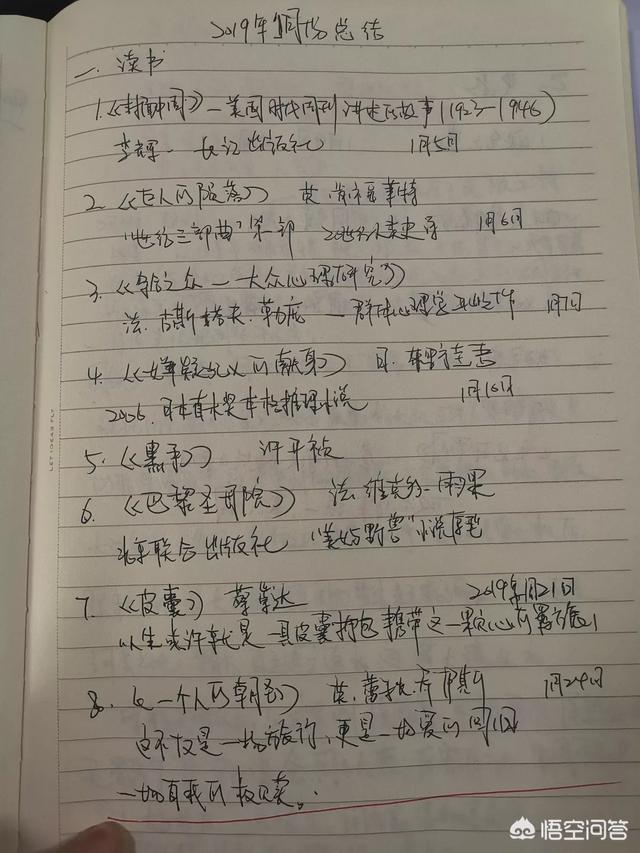 2019年1月份总结
一、读书
1.《封面中国》—美国时代周刊讲述的故事(1923—1946)
李辉 — 长江出版社 1月5日
2.《巨人的陨落》 英.肯·福莱特
“世纪三部曲”第一部 20世纪人类史诗 1月6日
3.《乌合之众 — 大众心理研究》
法.古斯塔夫.勒庞 — 群体心理学 1月7日
4.《嫌疑人X的献身》 日.东野圭吾
2006.日本直木奖 本格推理小说 1月16日
5.《黑手》 许开祯
6.《巴黎圣母院》 法.维克多.雨果
北京联合出版社 “美女与野兽”小说原型
7.《皮囊》 蔡崇达 2019年1月21日
人生或许就是一具皮囊打包携带着一颗心的羁旅
8.《一个人的朝圣》 英.蕾秋.乔伊斯 1月24日
这不仅是一场旅行,更是一场爱的回归
一场自我的救赎。
LET IDEAS FLY
悟空问答